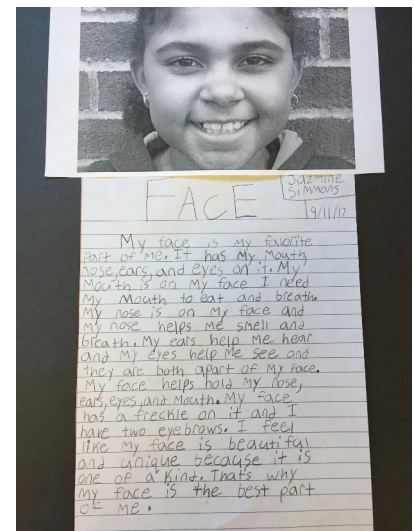 FACE
Jazmine
Simmons
9/11/17
My face is my favorite
part of me. It has my mouth,
nose, ears, and eyes on it. My
mouth is on my face I need
my mouth to eat and breath.
My nose is on my face and
my nose helps me smell and
breath. My ears help me hear
and my eyes help me see and
they are both apart of my face.
My face helps hold my nose,
ears, eyes, and mouth. My face
has a freckle on it and I
have two eyebrows. I feel
like my face is beautiful
and unique because it is
one of a kind. Thats why
my face is the best part
of me.